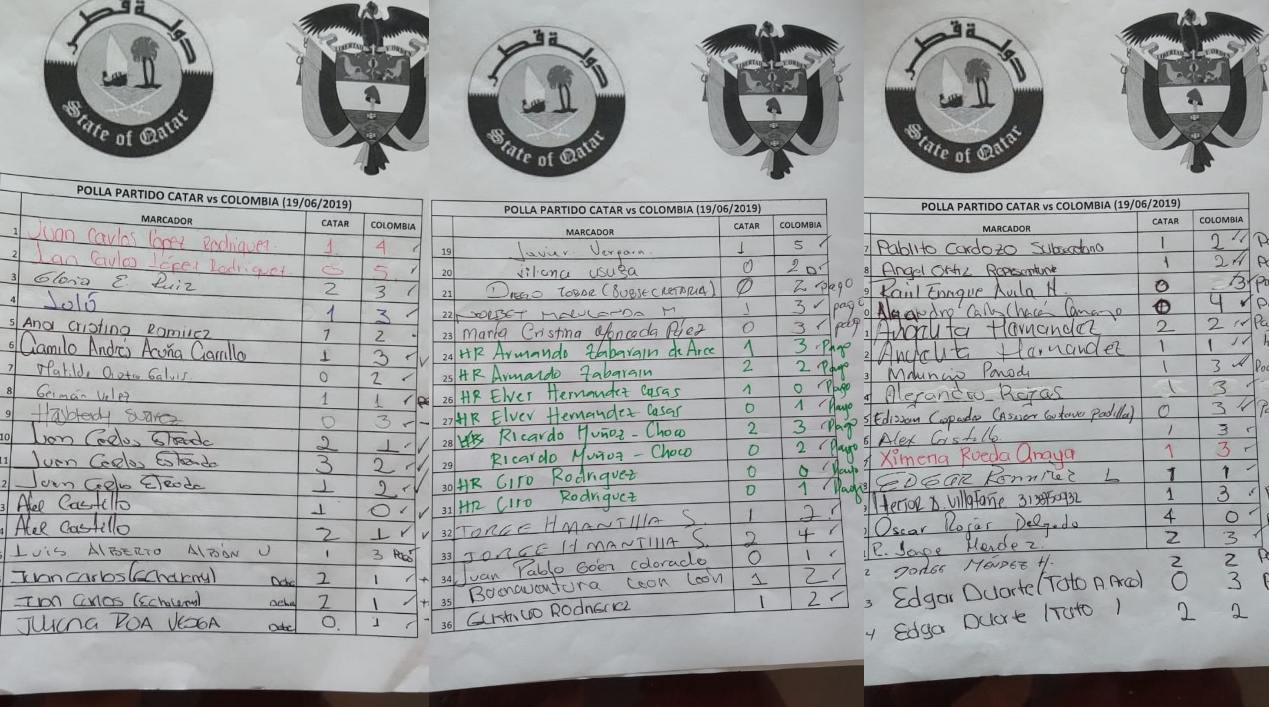 دولة قطر
State of Qatar
POLLA PARTIDO CATAR vs COLOMBIA (19/06/2019)
MARCADOR CATAR COLOMBIA
1 Juan Carlos López Rodriguez 1 4
2 Juan Carlos López Rodriguez 0 5
3 Gloria E. Ruiz 2 3
4 1 3
5 Ana Cristina Ramirez 1 2
6 Camilo Andrés Acuña Carrillo 1 3
7 Matilde 0 2
8 Germán Velez 1 1
9 Suarez 0 3
10 Juan Carlos Estrada 2 1
11 Juan Carlos Estrada 3 2
2 Juan Carlos Estrada 1 2
3 Alex Castillo 1 0
4 Alex Castillo 2 1
LUIS ALBERTO U 1 3 Pago
Juan Carlos (Echaverry) 2 1
Juan Carlos (Echaverry) 2 1
JULIANA ROA VEGGA 0 1
دولة قطر
State of Qatar
POLLA PARTIDO CATAR vs COLOMBIA (19/06/2019)
MARCADOR CATAR COLOMBIA
19 Javier Vergara 1 5
20 Viliana usuga 0 2
21 DIEGO TOBAR (SUBSECRETARIA) 0 2 pago
22 M 1 3 pago
23 Maria Cristina Moncada Páez 0 3 pago
24 HR Armando Zabarain de Arce 1 3 Pago
25 HR Armando Zabarain 2 2 Pago
26 HR Elver Hernandez Casas 1 0 Pago
27 HR Elver Hernandez Casas 0 1 Pago
28 Ricardo Muñoz - Choco 2 3 Pago
29 Ricardo Muñoz - Choco 0 2 Pago
30 HR Ciro Rodriguez 0 0 Pago
31 HR Ciro Rodriguez 0 1 Pago
32 JORGE H MANTILLA S. 1 2
33 JORGE H MANTILLA S. 2 4
34 Juan Pablo Goez Colorado 0 1
35 Buenaventura Leon Leon 1 2
36 Gustavo Rodriguez 1 2
دولة قطر
State of Qatar
POLLA PARTIDO CATAR vs COLOMBIA (19/06/2019)
MARCADOR CATAR COLOMBIA
7 Pablito Cardozo 1 2
8 Angel Ortiz 1 2
9 Raúl Enrique Avila H. 0 3
0 Alejandro Carlos Chacón Camargo 0 4
1 Angelita Hernandez 2 2
2 Angelita Hernandez 1 1
3 Mauricio Parodi 1 3
4 Alejandro Rojas 1 3
5 Edisson (Asesor Gustavo Padilla) 0 3
6 Alex Castillo 1 3
Ximena Rueda Amaya 1 3
EDGAR Ramirez L 1 1
Hector D. Villafañe 1 3
Oscar Rojas Delgado 4 0
P. Jorge Mendez. 2 3
2 JORGE MENDEZ H. 2 2
3 Edgar Duarte (Toto A Arco) 0 3
4 Edgar Duarte (Toto ) 2 2